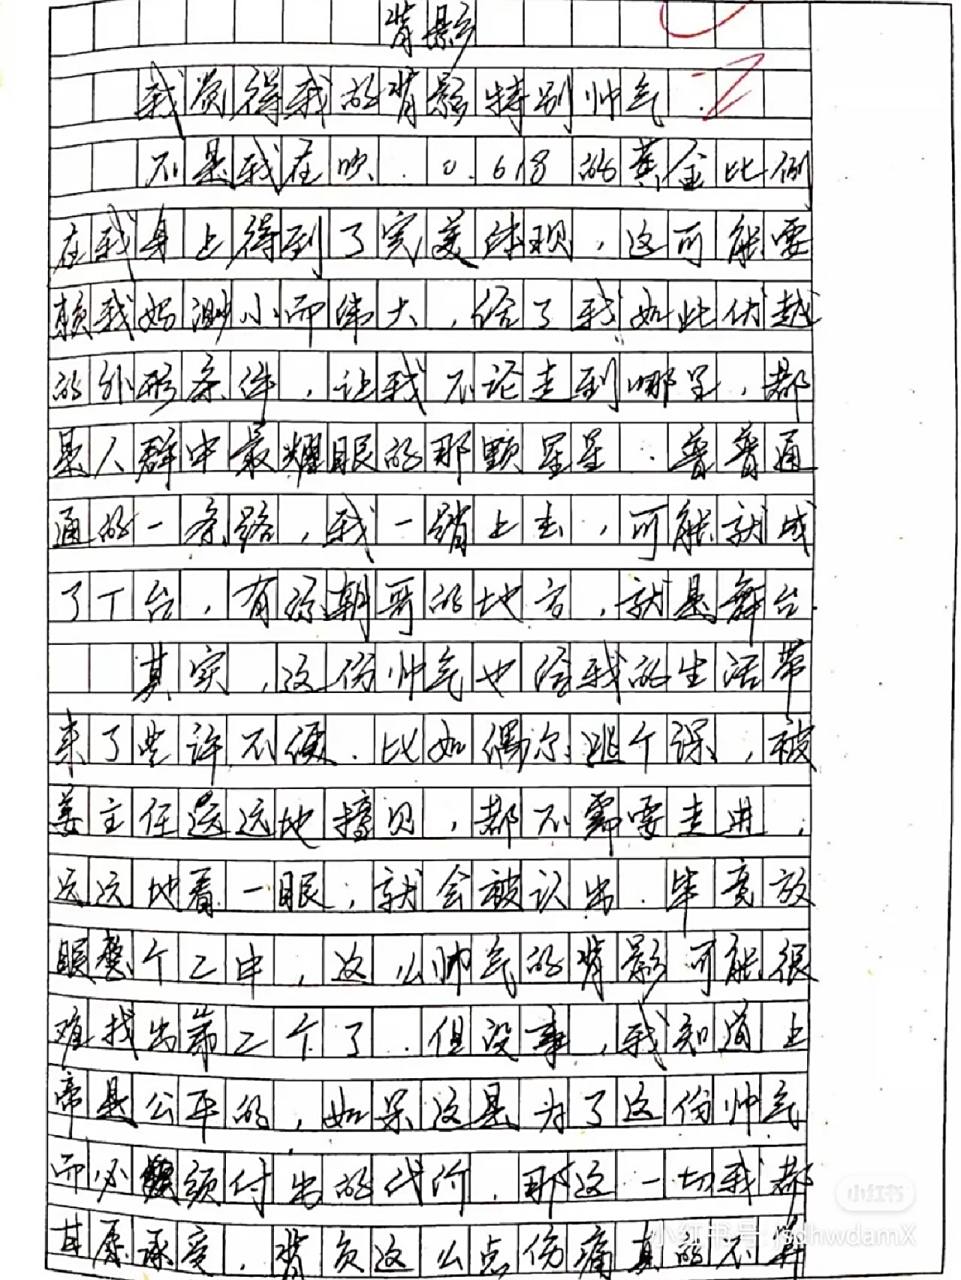 背影
我觉得我的背影特别帅气.
不是我在吹.0.618的黄金比例
在我身上得到了完美体现,这可能要
赖我妈渺小而伟大,给了我如此优越
的外形条件,让我不论走到哪里,都
是人群中最耀眼的那颗星星.普普通
通的一条路,我一踏上去,可能就成
了T台,有你朝哥的地方,就是舞台.
其实,这份帅气也给我的生活带
来了些许不便.比如偶尔逃个课,被
姜主任远远地撞见,都不需要走进,
远远地看一眼,就会被认出.毕竟放
眼整个二中,这么帅气的背影可能很
难找出第二个了.但没事,我知道上
帝是公平的,如果这是为了这份帅气
而必须付出的代价.那这一切我都
甘愿承受,背负这么点伤痛真的不算
小红书
小红书号:jsdhwdamX